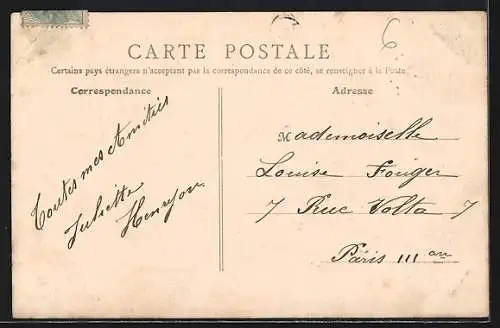 6
CARTE POSTALE
Certains pays étrangers n'acceptant pas la correspondance de ce côté, se renseigner à la Poste
Correspondance
Adresse
Toutes mes Amitiés
Juliette
Henryon
Mademoiselle
Louise Fouger
7 Rue Volta 7
Paris III arr